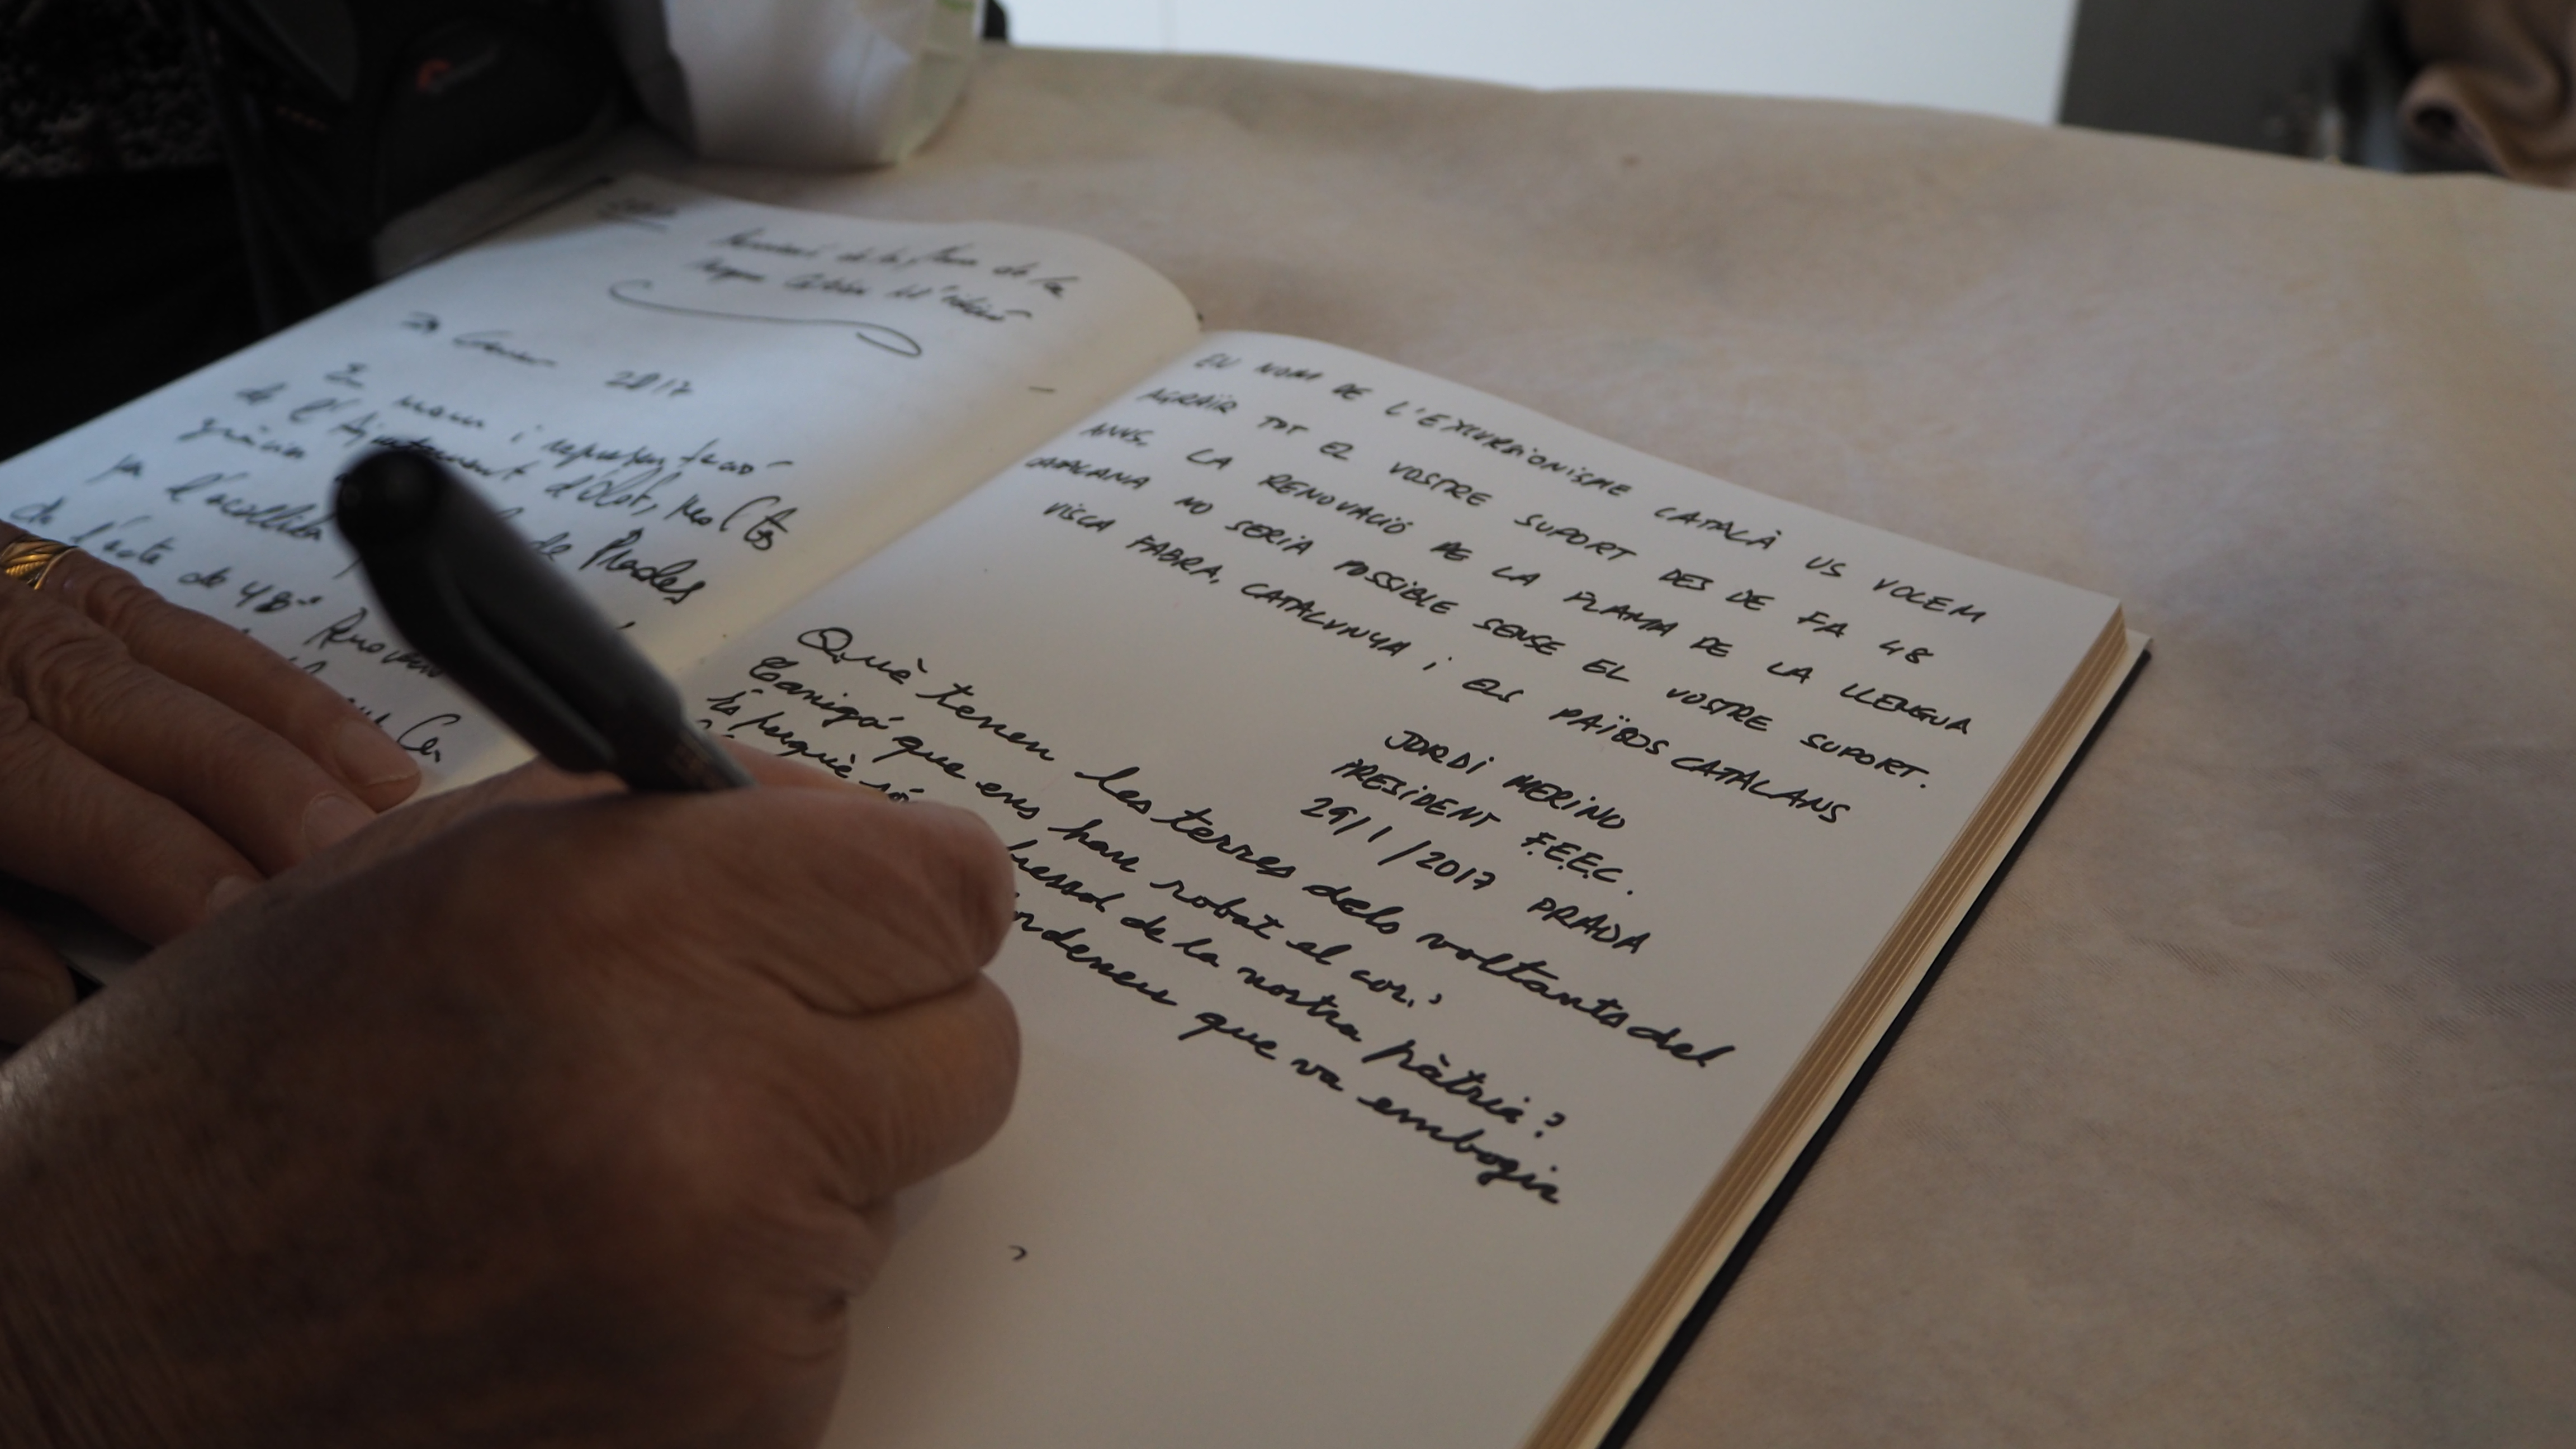 de la Flama de la
29 Gener 2017
En nom i representació
de l'Ajuntament d'Olot, moltes
gràcies
per l'acollida de Prades
de l'acte de 48è Renovació
EN NOM DE L'EXCURSIONISME CATALÀ US VOLEM
AGRAÏR TOT EL VOSTRE SUPORT DES DE FA 48
ANYS. LA RENOVACIÓ DE LA FLAMA DE LA LLENGUA
CATALANA NO SERIA POSSIBLE SENSE EL VOSTRE SUPORT.
VISCA FABRA, CATALUNYA i ELS PAÏSOS CATALANS
JORDI MERINO
PRESIDENT F.E.E.C.
29/1/2017 PRADA
Què tenen les terres dels voltants del
Canigó que ens han robat el cor?
És perquè só bressol de la nostra pàtria?
que va embogir